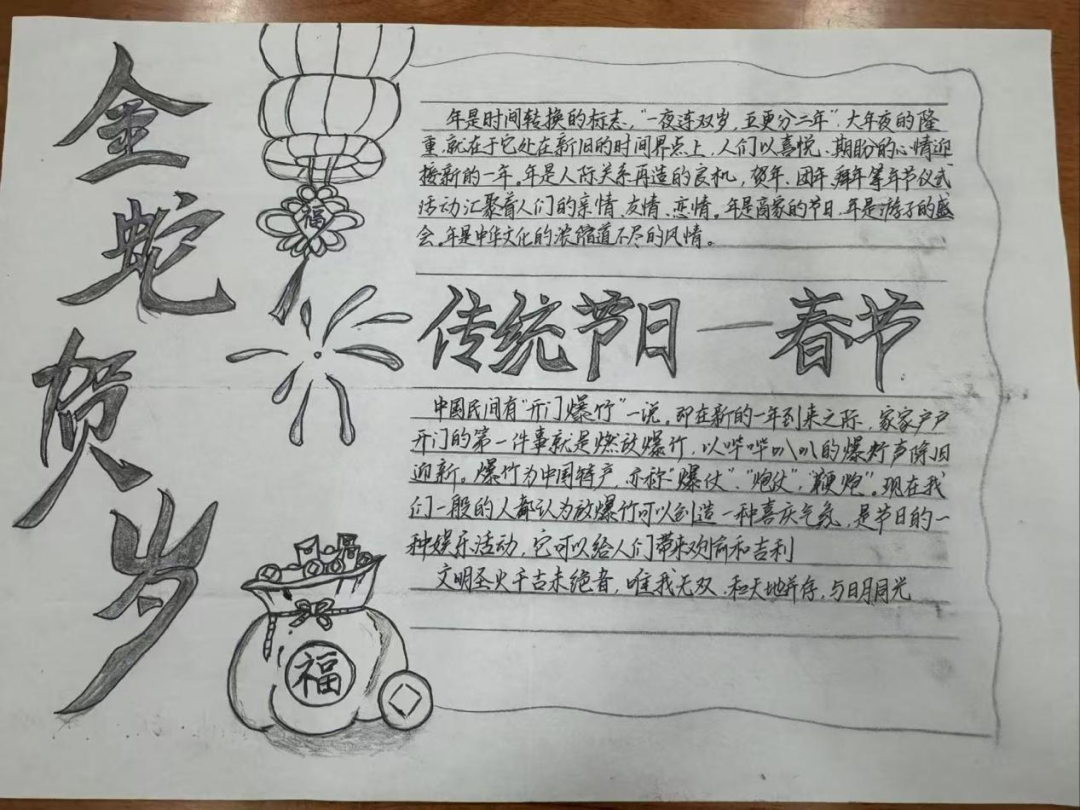 金蛇贺岁
福
年是时间转换的标志，“一夜连双岁，五更分二年”，大年夜的隆
重，就在于它处在新旧的时间界点上，人们以喜悦、期盼的心情迎
接新的一年。年是人际关系再造的良机，贺年、团年、拜年等年节仪式
活动汇聚着人们的亲情、友情、恋情。年是阖家的节日，年是游子的盛
会，年是中华文化的浓缩道不尽的风情。
传统节日—春节
中国民间有“开门爆竹”一说。即在新的一年到来之际，家家户户
开门的第一件事就是燃放爆竹，以哔哔叭叭的爆竹声除旧
迎新。爆竹为中国特产，亦称“爆仗”、“炮仗”、“鞭炮”。现在我
们一般的人都认为放爆竹可以创造一种喜庆气氛，是节日的一
种娱乐活动，它可以给人们带来欢愉和吉利
文明圣火千古未绝者，唯我无双，和天地并存，与日月同光
福